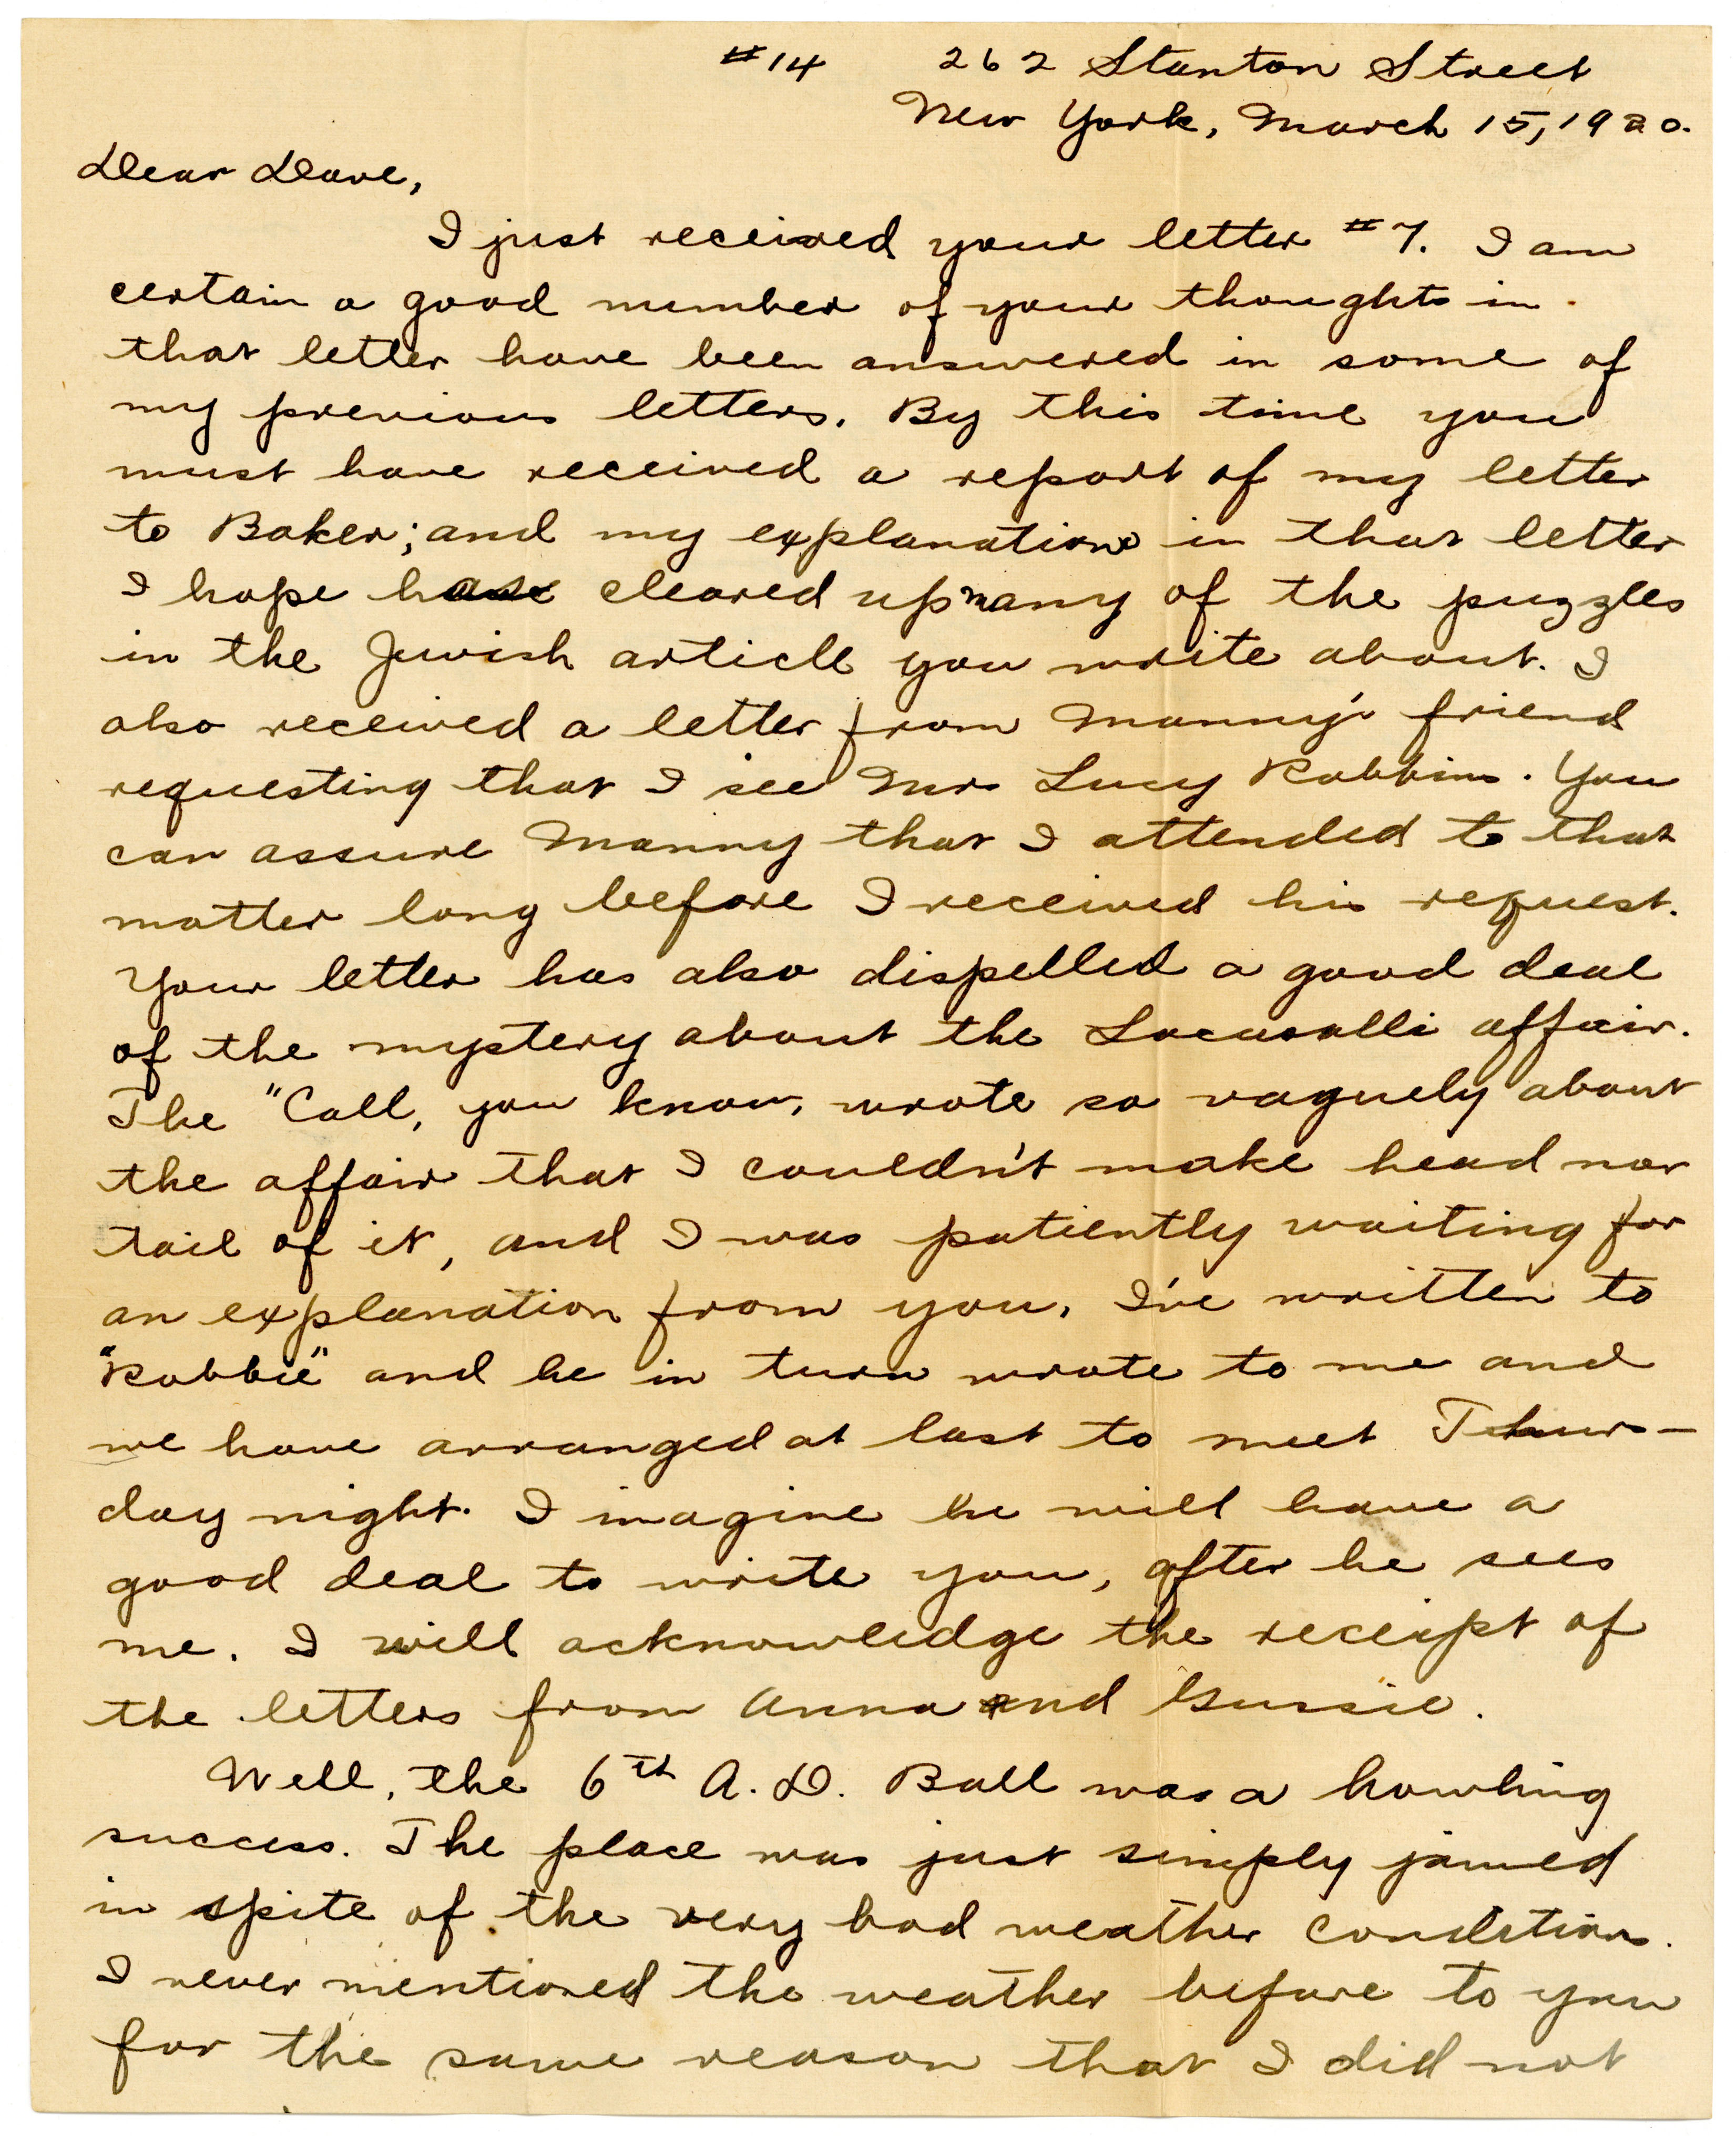 #14 262 Stanton Street
New York, March 15, 1920.
Dear Dave,
I just received your letter #7. I am
certain a good number of your thoughts in
that letter have been answered in some of
my previous letters. By this time you
must have received a report of my letter
to Baker; and my explanations in that letter
I hope have cleared up many of the puzzles
in the Jewish article you write about. I
also received a letter from Manny's friend
requesting that I see Mrs Lucy Robbins. You
can assure Manny that I attended to that
matter long before I received his request.
Your letter has also dispelled a good deal
of the mystery about the Locasalli affair.
The "Call, you know, wrote so vaguely about
the affair that I couldn't make head nor
tail of it, and I was patiently waiting for
an explanation from you. I've written to
"Robbie" and he in turn wrote to me and
we have arranged at last to meet Thurs-
day night. I imagine he will have a
good deal to write you, after he sees
me. I will acknowledge the receipt of
the letters from Anna and Gussie.
Well, the 6th A.D. Ball was a howling
success. The place was just simply jamed
in spite of the very bad weather condition.
I never mentioned the weather before to you
for the same reason that I did not